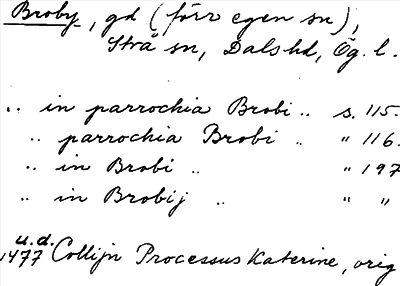 Broby, gd (förr egen sn),
Strå sn, Dals hd, Ög. l.
.. in parrochia Brobi .. s. 115.
.. parrochia Brobi .. " 116.
.. in Brobi .. " 197
.. in Brobij .. " "
u.d.
1477 Collijn Processus Katerine, orig